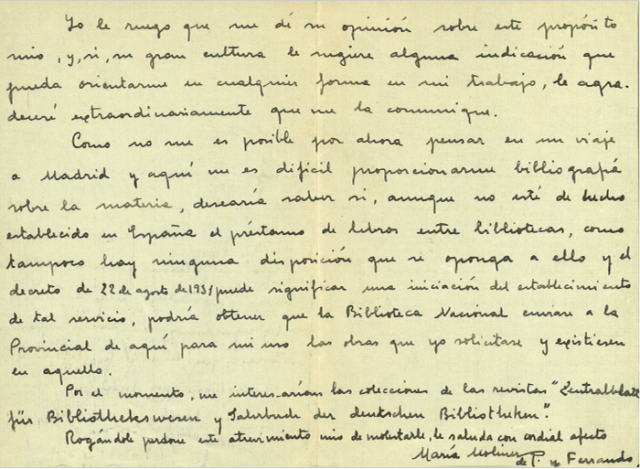 Yo le ruego que me dé su opinión sobre este propósito
mio, y, si, su gran cultura le sugiere alguna indicación que
pueda orientarme en cualquier forma en mi trabajo, le agra-
deceré extraordinariamente que me la comunique.
Como no me es posible por ahora pensar en un viaje
a Madrid y aquí me es dificil proporcionarme bibliografía
sobre la materia, desearía saber si, aunque no esté de hecho
establecido en España el préstamo de libros entre bibliotecas, como
tampoco hay ninguna disposición que se oponga a ello y el
decreto de 22 de agosto de 1931 puede significar una iniciación del establecimiento
de tal servicio, podría obtener que la Biblioteca Nacional enviase a la
Provincial de aquí para mi uso las obras que yo solicitase y existiesen
en aquella.
Por el momento, me interesarían las colecciones de las revistas "Zentralblatt
für Bibliothekswesen y Jahrbuch der deutschen Bibliotheken".
Rogándole perdone este atrevimiento mio de molestarle, le saluda con cordial afecto
María Moliner
de F. y Ferrando